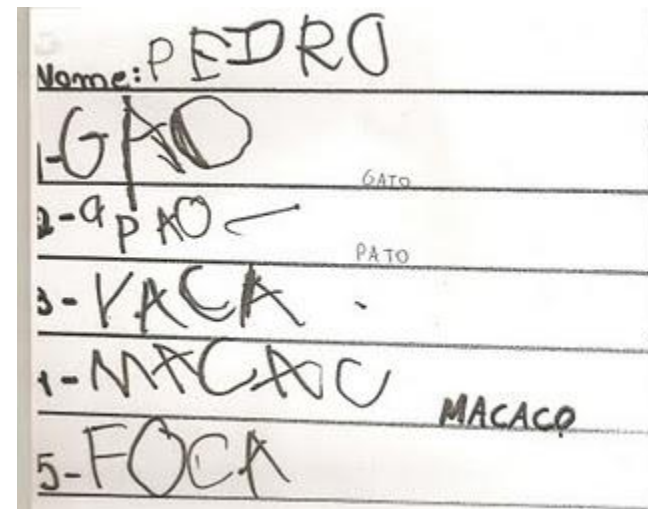 Nome: PEDRO
1-GAO
GATO
2-PAO
PATO
3-VACA
4-MACAO
MACACO
5-FOCA